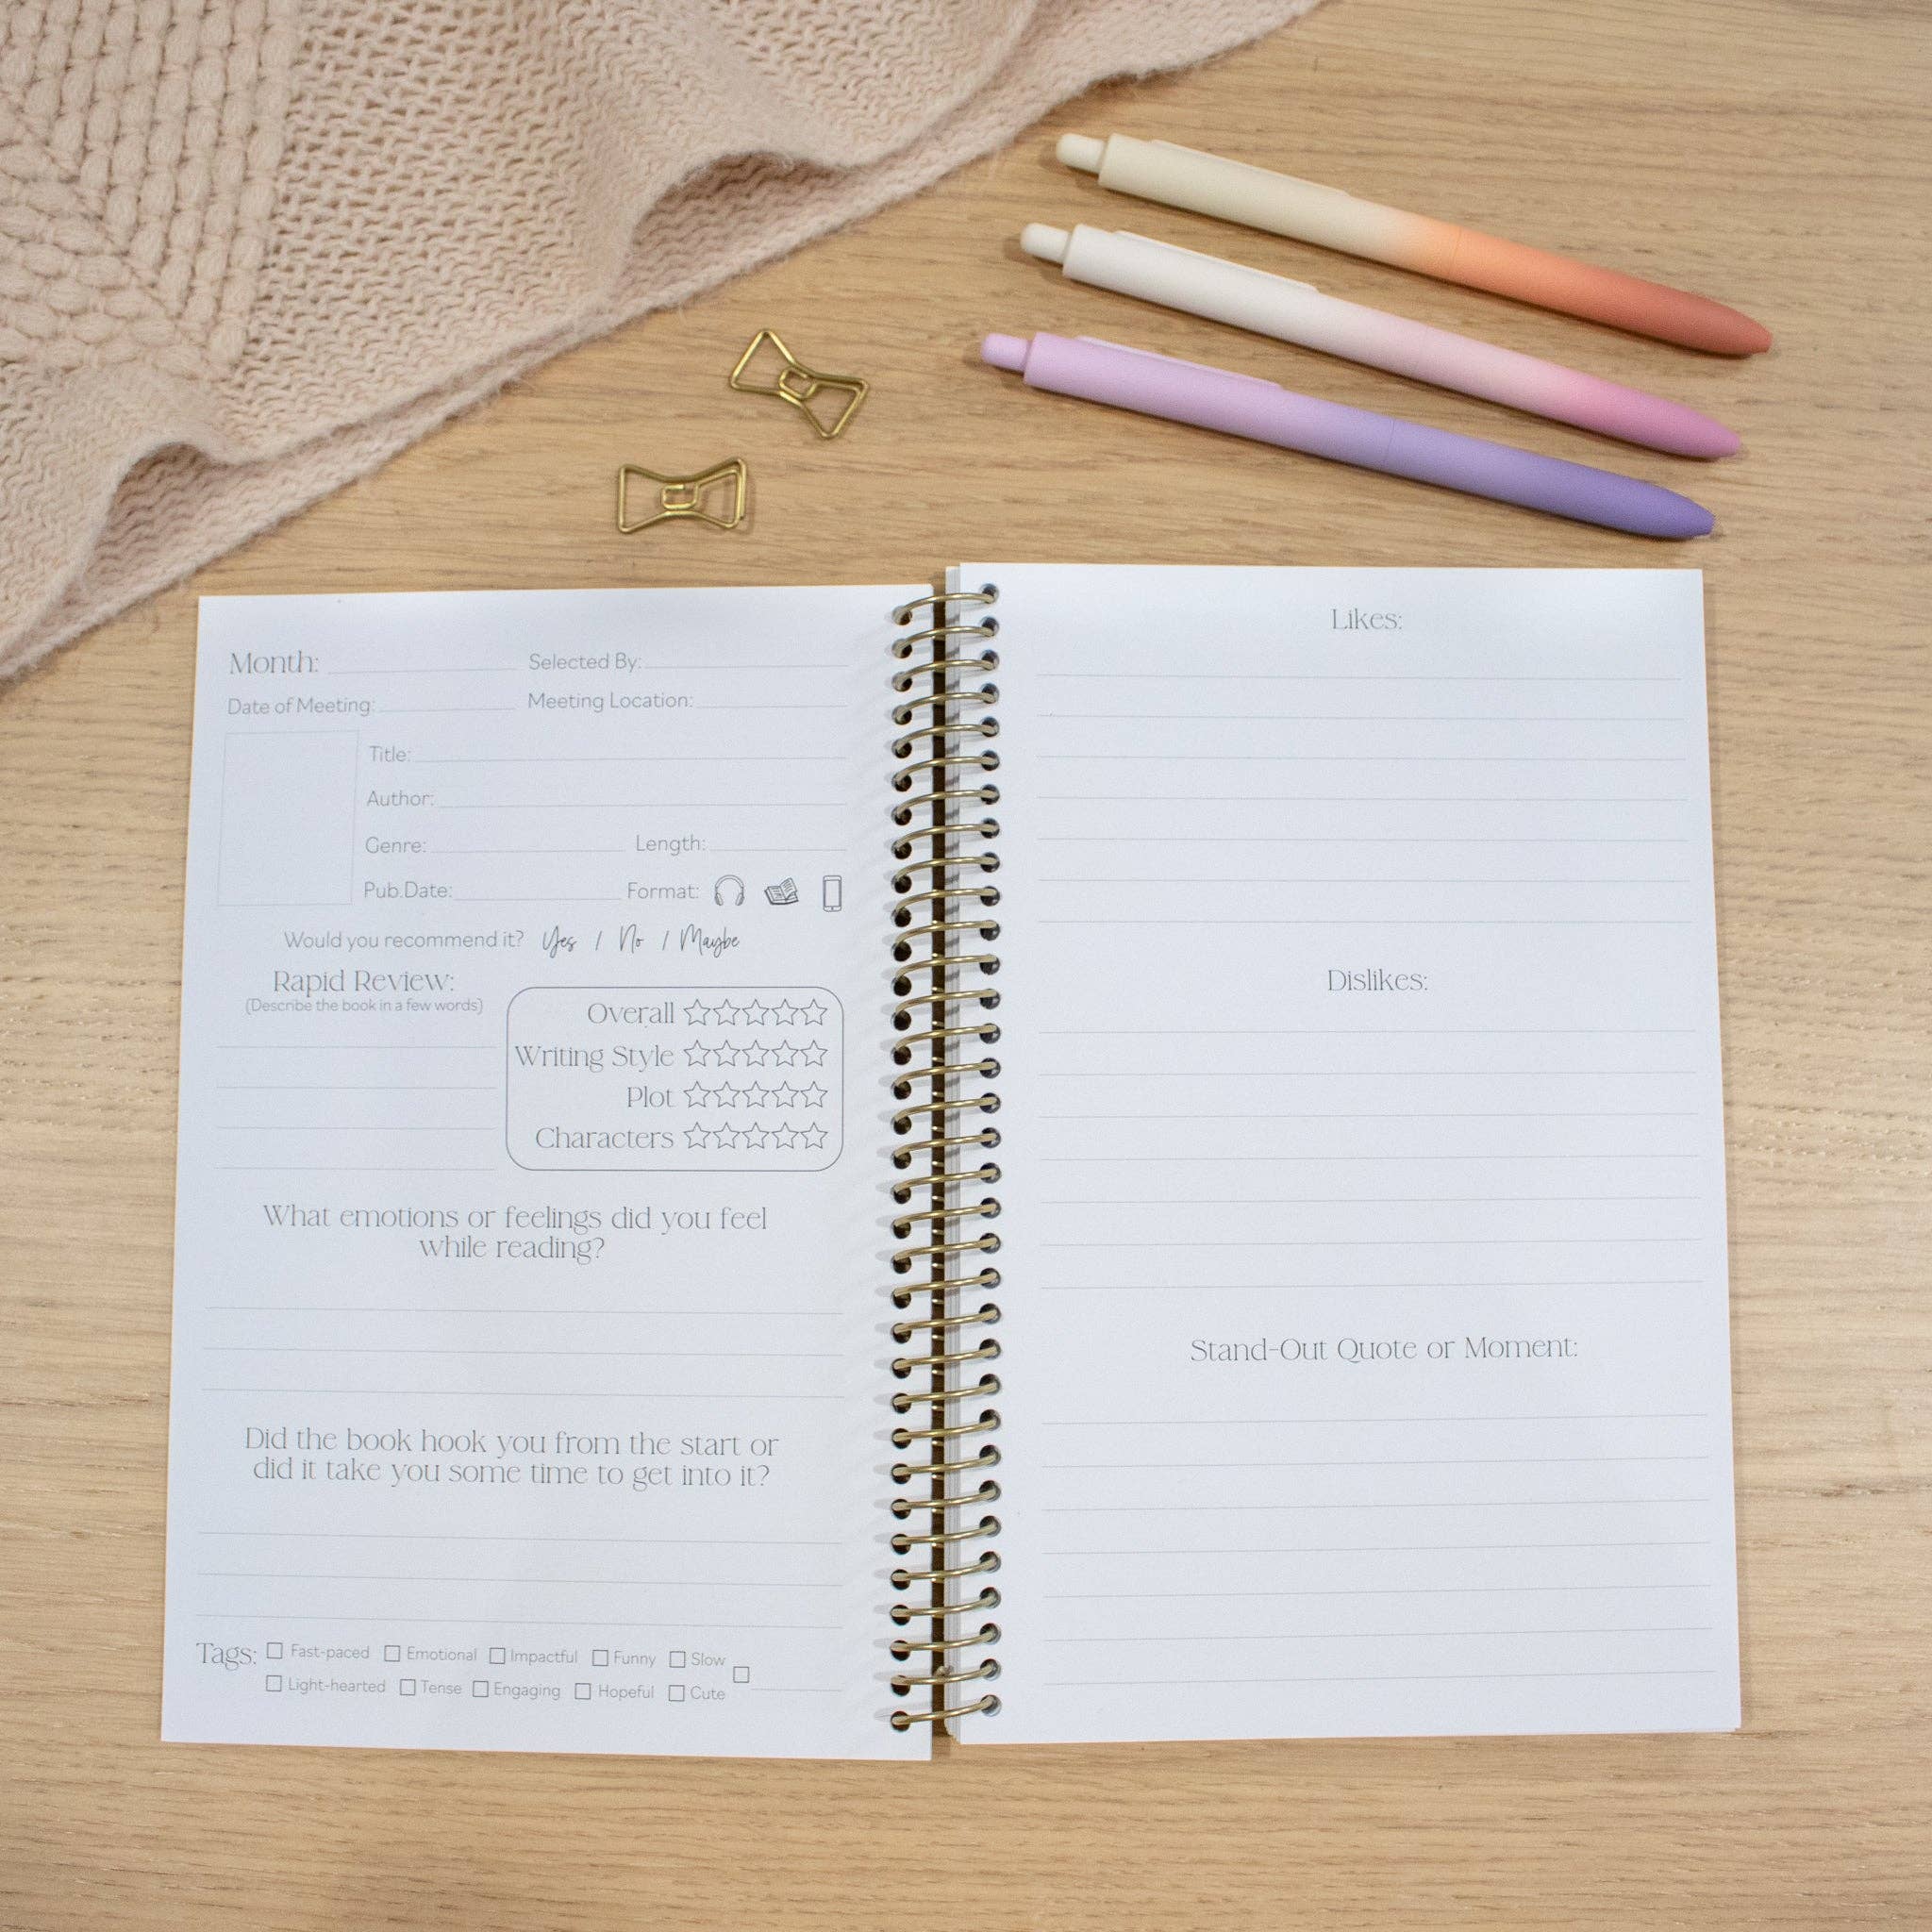 Month: Selected By:
Date of Meeting: Meeting Location:
Title:
Author:
Genre: Length:
Pub.Date: Format:
Would you recommend it? Yes / No / Maybe
Rapid Review:
(Describe the book in a few words)
Overall
Writing Style
Plot
Characters
What emotions or feelings did you feel
while reading?
Did the book hook you from the start or
did it take you some time to get into it?
Tags: Fast-paced Emotional Impactful Funny Slow
Light-hearted Tense Engaging Hopeful Cute
Likes:
Dislikes:
Stand-Out Quote or Moment: